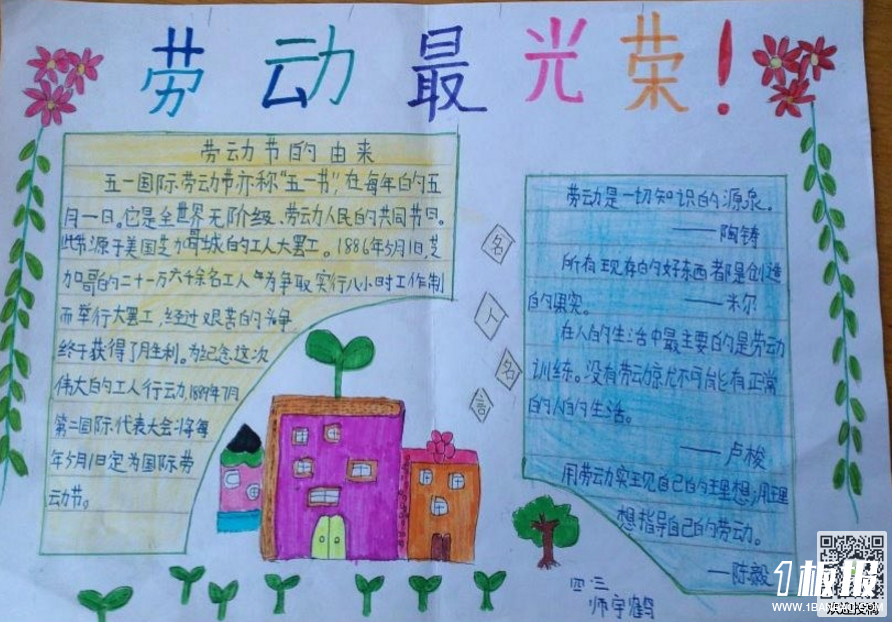 劳动最光荣！
劳动节的由来
五一国际劳动节亦称“五一节”，在每年的五
月一日。它是全世界无阶级、劳动人民的共同节日。
此节源于美国芝加哥城的工人大罢工。1886年5月1日，芝
加哥的二十一万六千余名工人为争取实行八小时工作制
而举行大罢工，经过艰苦的斗争，
终于获得了胜利。为纪念这次
伟大的工人行动，1889年7月
第二国际代表大会将每
年5月1日定为国际劳
动节。
名
人
名
言
劳动是一切知识的源泉。
——陶铸
所有现存的好东西都是创造
的果实。——米尔
在人的生活中最主要的是劳动
训练。没有劳动就不可能有正常
的人的生活。
——卢梭
用劳动实现自己的理想，用理
想指导自己的劳动。
—陈毅
四.三
师宇鹤
1板报
WWW.1BANBAO.COM
欢迎投稿